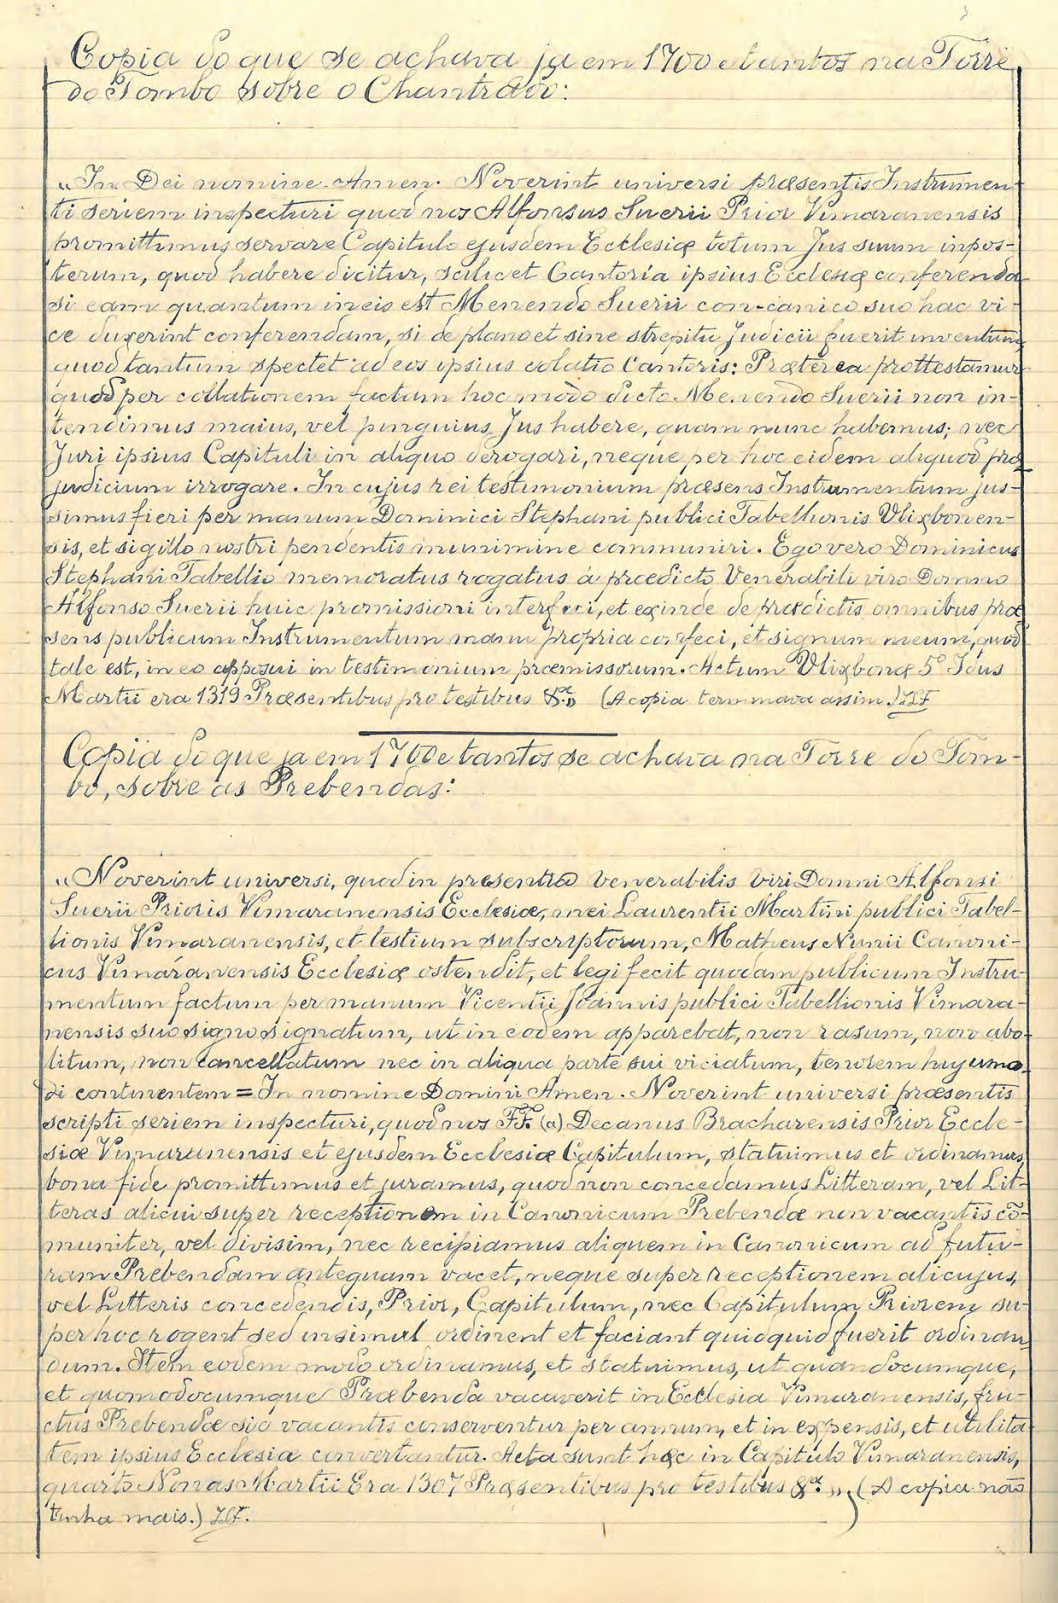 Copia do que se achava ja em 1700 e tantos na Torre
do Tombo sobre o Chantrado:
"In Dei nomine Amen. Noverint universi præsentis Instrumen-
ti seriem inspecturi quod nos Alfonsus Suerii Prior Vimaranensis
promittimus servare Capitulo ejusdem Ecclesiæ totum Jus suum inpos-
terum, quod habere dicitur, scilicet Cantoria ipsius Ecclesiæ conferenda
si eam quantum in eis est Menendo Suerii con-canico suo hac vi-
ce duxerint conferendam, si de plano et sine strepitu Judicii fuerit inventum
quod tantum spectet ad eos ipsius colatio Cantoris: Præterea prottestamur
quod per collationem factum hoc modo dicto Menendo Suerii non in-
tendimus maius, vel pinguius Jus habere, quam nunc habemus; nec
Juri ipsius Capituli in aliquo derogari, neque per hoc eidem aliquod præ
judicium irrogare. In cujus rei testimonium præsens Instrumentum jus-
simus fieri per manum Dominici Stephani publici Tabellionis Ulixbonen-
sis, et sigillo nostri pendentis munimine communiri. Ego vero Dominicus
Stephani Tabellio memoratus rogatus à prœdicto Venerabili viro Domno
Alfonso Suerii huic promissioni interfeci, et exinde de prædictis omnibus præ
sens publicum Instrumentum manu propria confeci, et signum meum, quod
tale est, in eo apposui in testimonium præmissorum. Actum Ulixbonæ 5º Idus
Martii era 1319 Præsentibus pro testibus &ª." (A copia terminava assim.) JLF
Copia do que ja em 1700 e tantos se achava na Torre do Tom-
bo, sobre as Prebendas:
"Noverint universi, quod in presentia venerabilis viri Domni Alfonsi
Suerii Prioris Vimaranensis Ecclesiæ, mei Laurentii Martini publici Tabel-
lionis Vimaranensis, et testium subscriptorum, Matheus Nunii Canoni-
cus Vimaranensis Ecclesiæ ostendit, et legi fecit quodam publicum Instru-
mentum factum per manum Vicentii Joannis publici Tabellionis Vimara-
nensis suo signo signatum, ut in eodem apparebat, non rasum, non abo-
litum, non cancellatum nec in aliqua parte sui viciatum, tenorem hujusmo
di continentem = In nomine Domini Amen. Noverint universi præsentis
scripti seriem inspecturi, quod nos FF. (a) Decanus Bracharensis Prior Eccle-
siæ Vimaranensis et ejusdem Ecclesiæ Capitulum, statuimus et ordinamus
bona fide promittimus et juramus, quod non concedamus Litteram, vel Lit-
teras alicui super receptionem in Canonicum Prebendæ non vacantis cõ-
muniter, vel divisim, nec recipiamus aliquem in Canonicum ad futu-
ram Prebendam antequam vacet, neque super receptionem alicujus,
vel Litteris concedendis, Prior, Capitulum, nec Capitulum Priorem su-
per hoc rogent sed insimul ordinent et faciant quidquid fuerit ordinan
dum. Item eodem modo ordinamus, et statuimus, ut quandocumque,
et quomodocumque Præbenda vacaverit in Ecclesia Vimaranensis, fru-
ctus Prebendæ sic vacantis conserventur per annum, et in expensis, et utilita
tem ipsius Ecclesiæ convertantur. Acta sunt hæc in Capitulo Vimaranensis,
quarto Nonas Martii Era 1307 Præsentibus pro testibus &ª." (A copia não
tinha mais.) JLF.